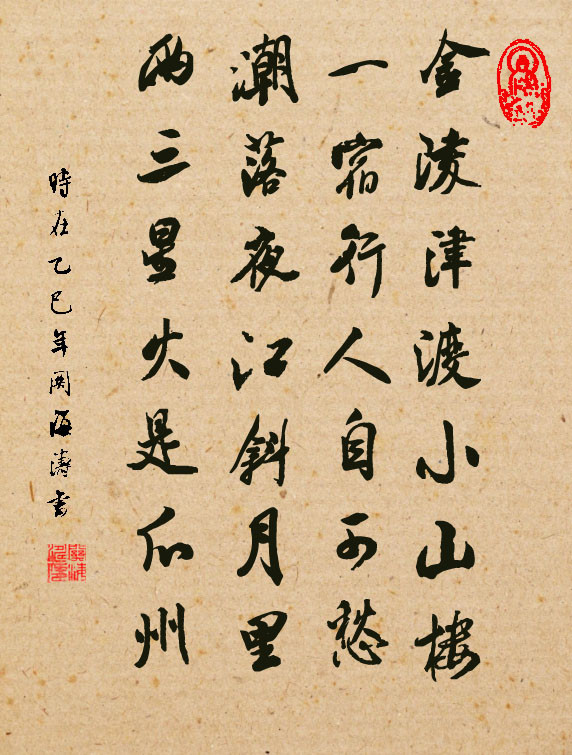 金陵津渡小山樓
一宿行人自可愁
潮落夜江斜月里
两三星火是瓜州
時在乙巳年関海濤書